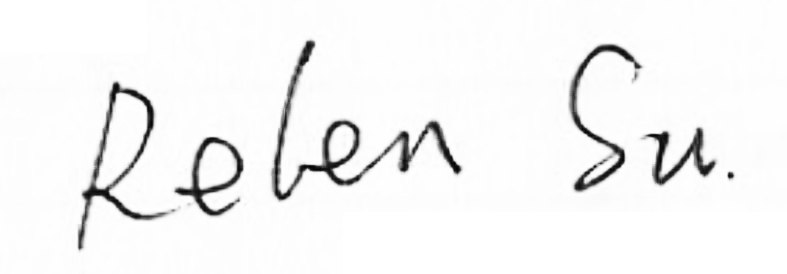 Reben Su.